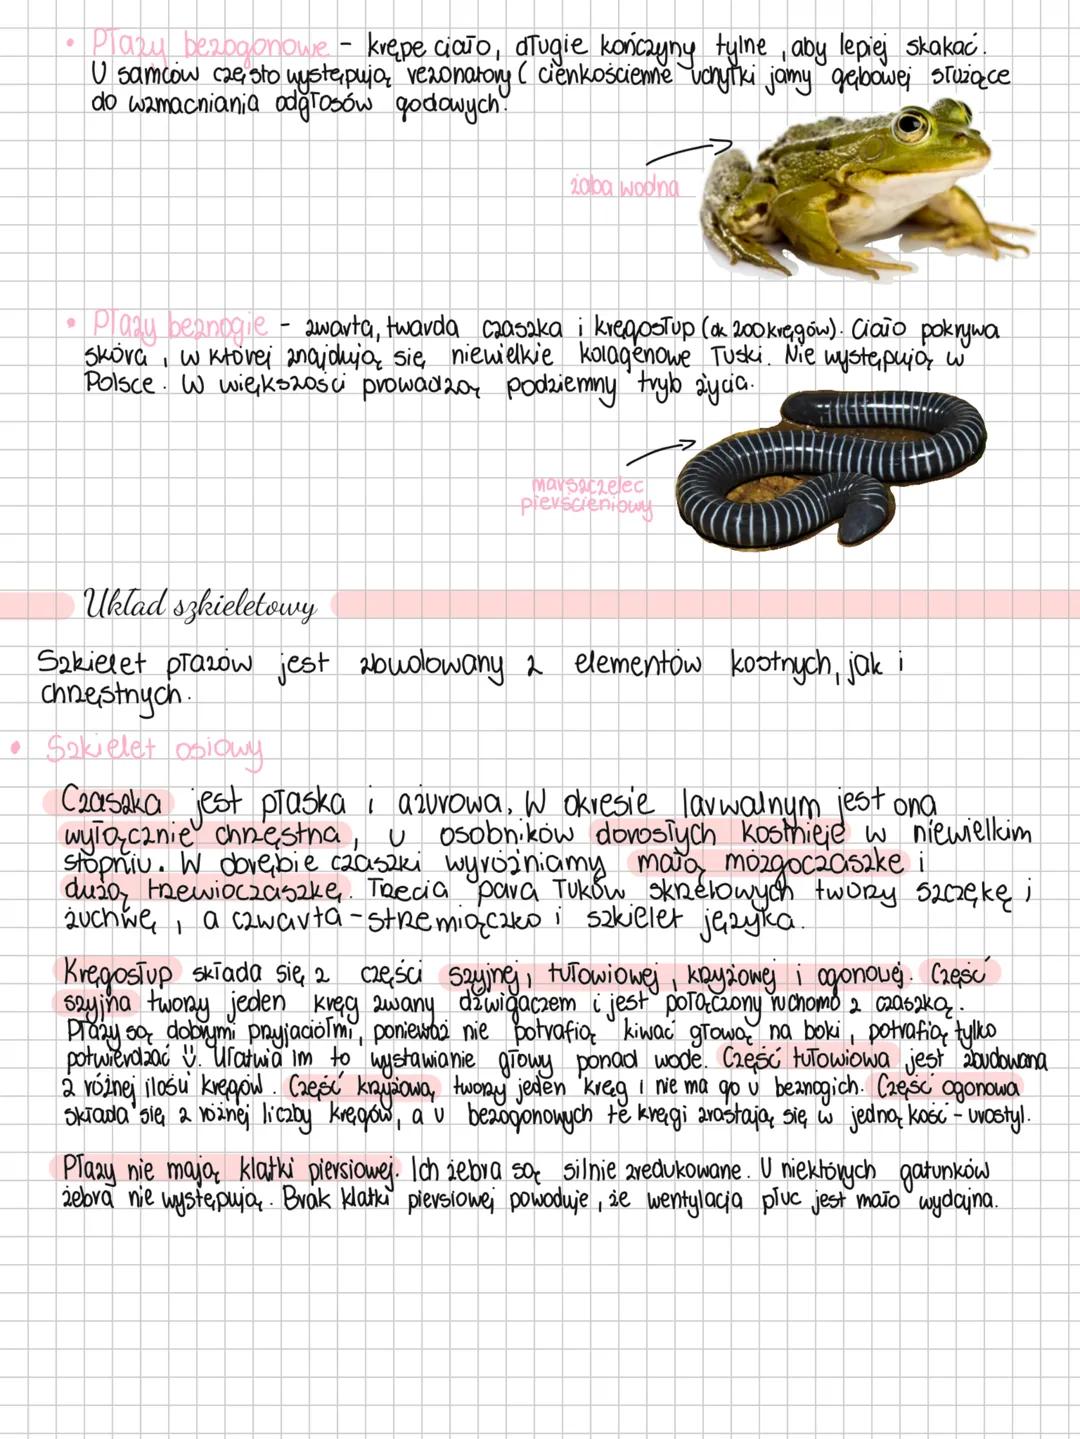 • Płazy bezogonowe - krępe ciało, długie kończyny tylne, aby lepiej skakać.
U samców często występują rezonatory ( cienkościenne uchyłki jamy gębowej służące
do wzmacniania odgłosów godowych.
żaba wodna
• Płazy beznogie - zwarta, twarda czaszka i kręgosłup (ok 200 kręgów). Ciało pokrywa
skóra, w której znajdują się niewielkie kolagenowe łuski. Nie występują w
Polsce. W większości prowadzą podziemny tryb życia.
marszczelec
pierścieniowy
Układ szkieletowy
Szkielet płazów jest zbudowany z elementów kostnych, jak i
chrzęstnych.
• Szkielet osiowy
Czaszka jest płaska i ażurowa. W okresie larwalnym jest ona
wyłącznie chrzęstna, u osobników dorosłych kostnieje w niewielkim
stopniu. W obrębie czaszki wyróżniamy małą mózgoczaszkę i
dużą trzewioczaszkę. Trzecia para łuków skrzelowych tworzy szczękę i
żuchwę, a czwarta - strzemiączko i szkielet języka.
Kręgosłup składa się z części szyjnej, tułowiowej, krzyżowej i ogonowej. Część
szyjna tworzy jeden kręg zwany dźwigaczem i jest połączony ruchomo z czaszką.
Płazy są dobrymi przyjaciółmi, ponieważ nie potrafią kiwać głową na boki, potrafią tylko
potwierdzać ü. Ułatwia im to wystawianie głowy ponad wodę. Część tułowiowa jest zbudowana
z różnej ilości kręgów. Część krzyżową tworzy jeden kręg i nie ma go u beznogich. Część ogonowa
składa się z różnej liczby kręgów, a u bezogonowych te kręgi zrastają się w jedną kość - urostyl.
Płazy nie mają klatki piersiowej. Ich żebra są silnie zredukowane. U niektórych gatunków
żebra nie występują. Brak klatki piersiowej powoduje, że wentylacja płuc jest mało wydajna.